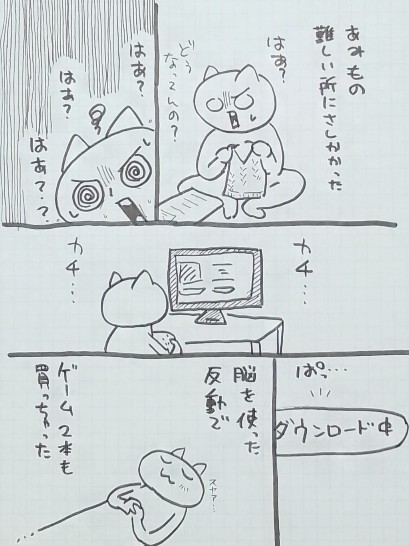 あみもの
難しい所にさしかかった
はぁ?
どう
なってんの?
はぁ?
はぁ?
はぁ??
カチ…
カチ…
ぱっ…
ダウンロード中
脳を使った
反動で
ゲーム2本も
買っちゃった
スヤァ…